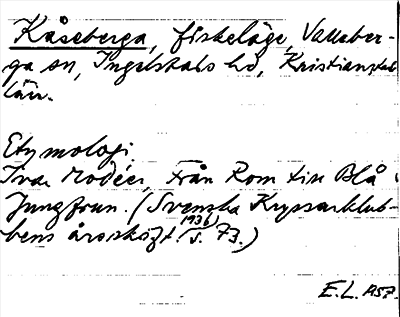 Kåseberga, fiskeläge, Valleber-
ga sn, Ingelstads hd, Kristianstads
län.
Etymologi.
Ivar Modéer, Från Rom till Blå
Jungfrun. (Svenska Kryssarklub-
bens årsskrift (1936) s. 73.)
E.L. 1957.